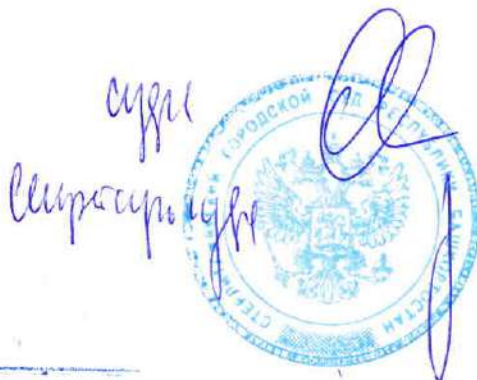 судья
Секретарь суда
СТЕРЛИ ГОРОДСКОЙ СУД РЕСПУБЛИКИ БАШКОРТОСТАН